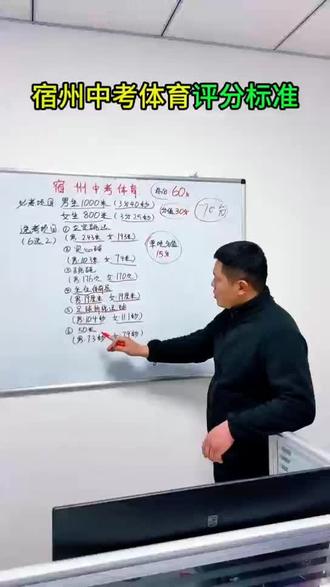 宿州中考体育评分标准
宿州中考体育 总分60分
必考项目 男生1000米(3分40秒)
女生800米(3分25秒) 分值30分
选考项目 ①立定跳远
(6选2) (男2.43米 女1.93米) 单项分值
②实心球 15分
(男10.3米 女7.4米)
③跳绳
(男175次 女170次)
④坐位体前屈
(男19厘米 女19厘米)
⑤足球
(男10.4秒 女11.1秒)
⑥50米
(男7.3秒 女7.9秒)